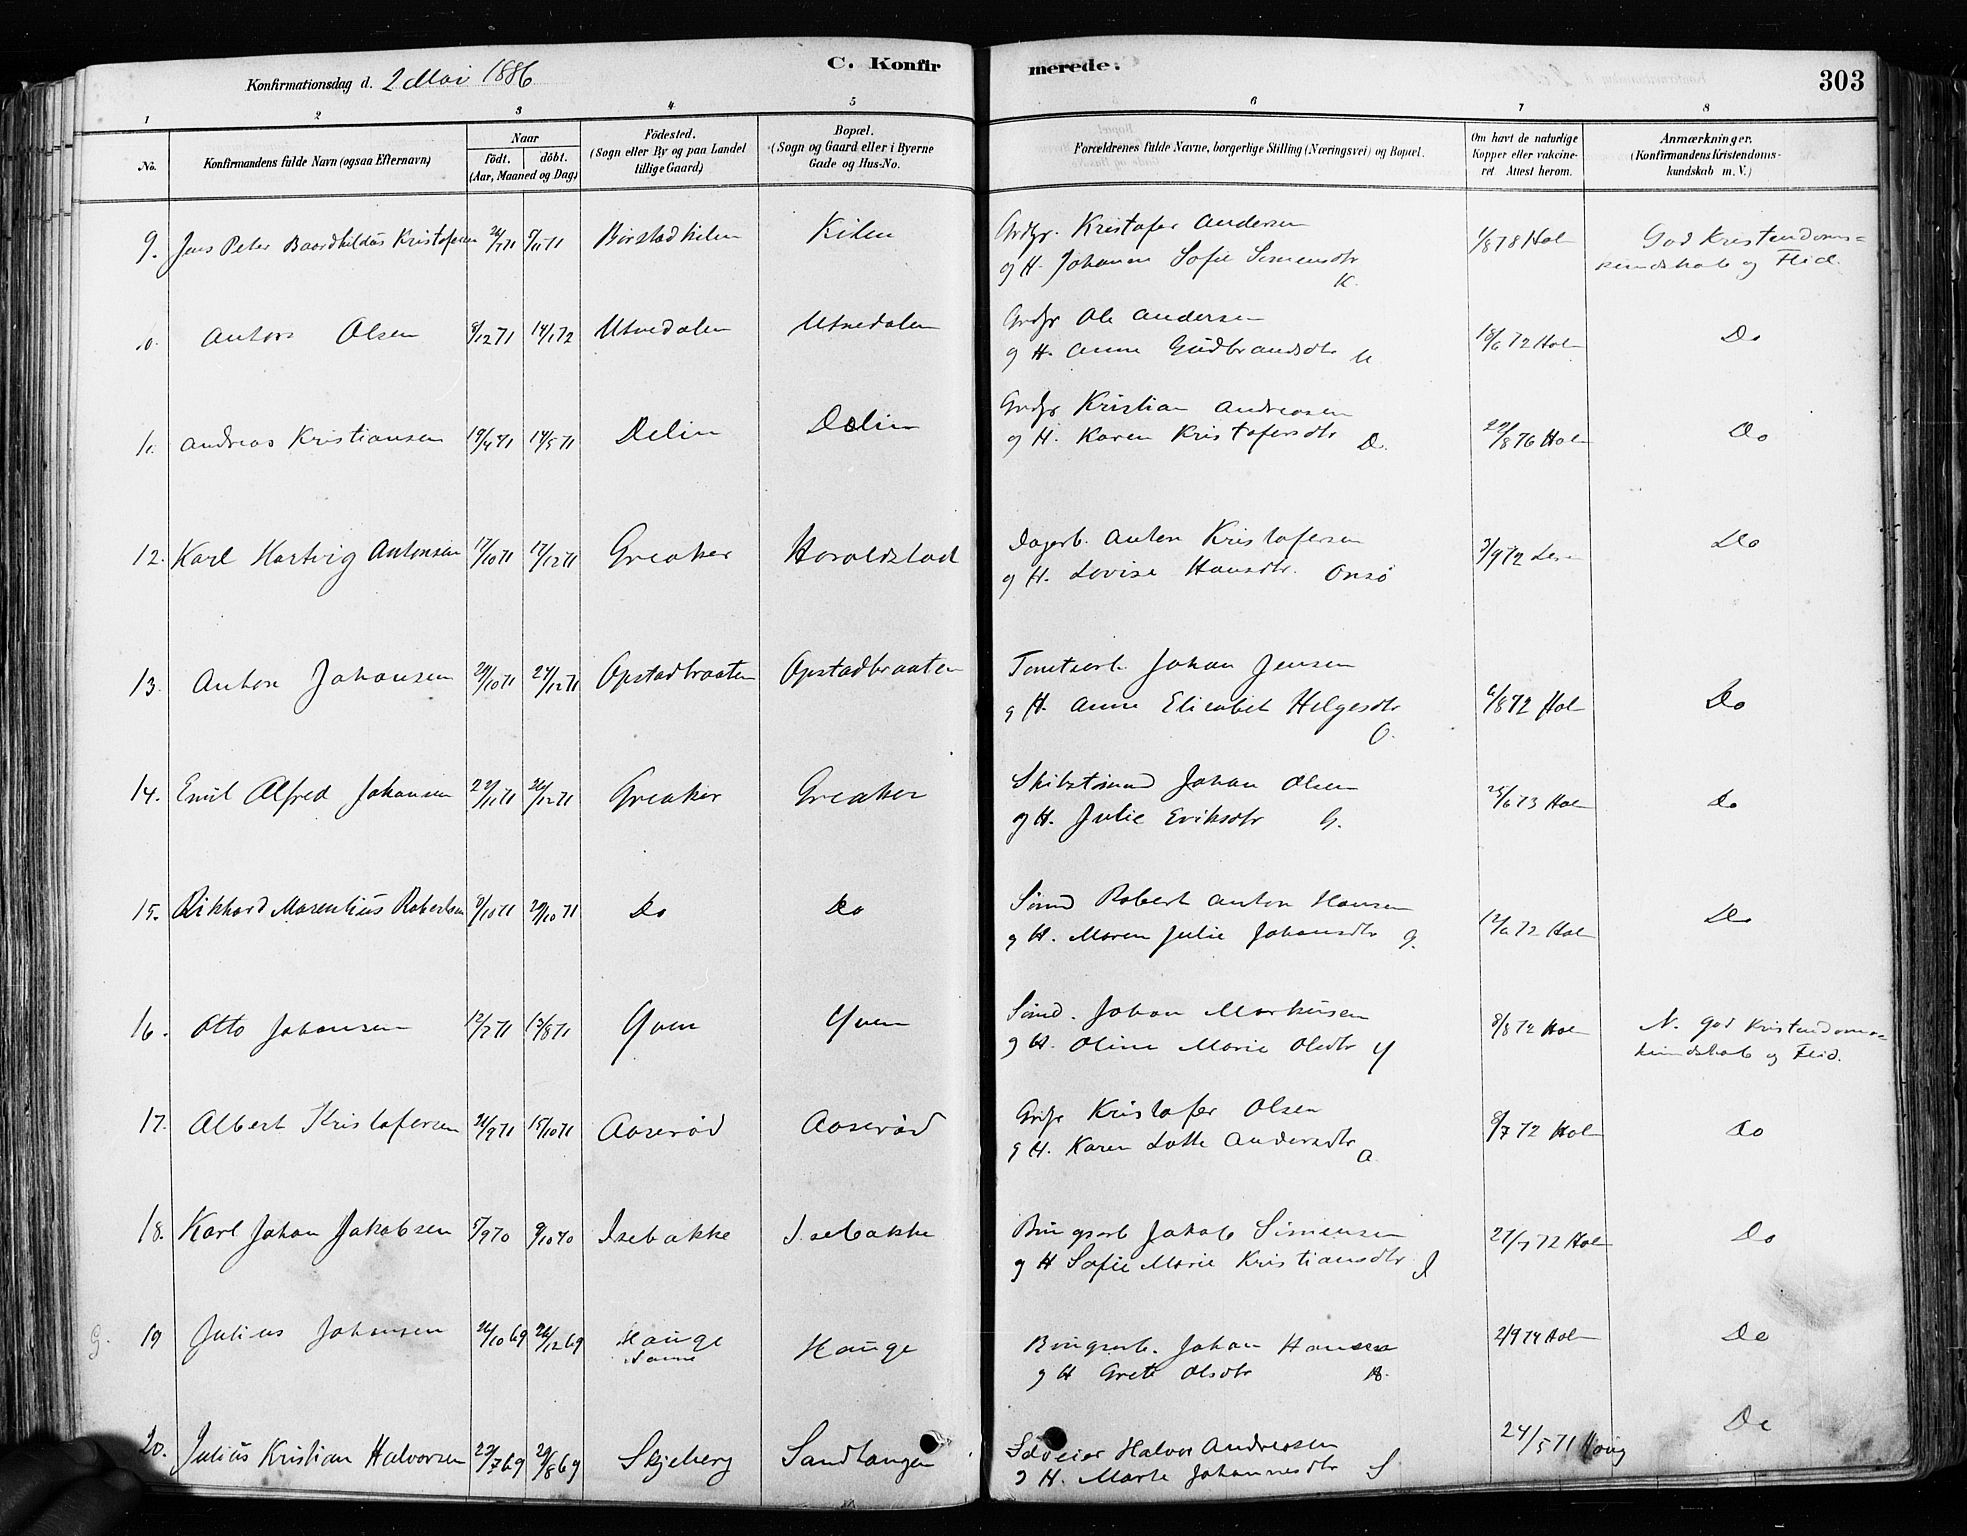 Konfirmationsdag d. 2 Mai 1886
C. Konfirmerede.
303
1 2 3 4 5 6 7 8
No.
Konfirmandens fulde Navn (ogsaa Efternavn)
Naar
födt. döbt.
(Aar, Maaned og Dag)
Födested.
(Sogn eller By og paa Landet
tillige Gaard)
Bopæl.
(Sogn og Gaard eller i Byerne
Gade og Hus-No.
Forældrenes fulde Navne, borgerlige Stilling (Næringsvei) og Bopæl.
Om havt de naturlige
Kopper eller vakcine-
ret Attest herom.
Anmærkninger.
(Konfirmandens Kristendoms-
kundskab m. V.)
9. Jens Peter Kristofersen Kilen Grdbr. Kristofer Andersen 1/8 78 Hol God Kristendoms-
og H. Johanne Sofie Simensdtr K. kundskab og Flid.
Olsen 8/12 71 14/1 72 Utnedalen Utnedalen Grdbr Ole Andersen 18/6 72 Hol Do
g H. Anne Gudbrandsdtr U
Andreas Kristiansen 19/4 71 14/5 71 Delin Delin Grdbr Kristian Andreasen 22/8 76 Hol Do
og H. Karen Kristofersdtr D.
12. Karl Hartvig Antonsen 17/10 71 17/12 71 Greaker Haraldstad Dagarb. Anton Kristofersen Do
g H. Lovise Hansdtr. Onsö
13. Anton Johansen 24/12 71 Opstadbraaten Opstadbraaten Tomtearb. Johan Jensen 6/8 72 Hol Do
g H. Anne Elisabet Helgesdtr O.
14. Emil Alfred Johansen 26/12 71 Greaker Greaker Skibstømmd Johan Olsen 25/6 73 Hol Do
og H. Julie Eriksdtr G.
15. Rikhard Marentius Robertsen 8/10 71 29/10 71 Do Do Sømd Robert Anton Hansen 12/6 72 Hol Do
g H. Maren Julie Johansdtr G.
16. Otto Johansen 12/7 71 13/8 71 Yven Yven Sømd. Johan Markusen 8/8 72 Hol N. god Kristendoms-
og H. Oline Marie Olsdtr Y kundskab og Flid.
17. Albert Kristofersen 15/10 71 Aaserød Aaserød Grdbr Kristofer Olsen 8/7 72 Hol Do
g H. Karen Lotte Andersdtr A.
18. Karl Johan Jakobsen 5/9 70 9/10 70 Isebakke Isebakke Brugsarb Jakob Simensen 27/7 72 Hol Do
g H Sofie Marie Kristiansdtr I
G. 19 Julius Johansen 26/10 69 26/12 69 Hauge Hauge Brugsarb. Johan Hansen 2/9 74 Hol Do
g H Grete Olsdtr H.
20. Julius Kristian Halvorsen 23/7 69 29/8 69 Skjeberg Sandtangen Selveier Halvor Andreasen 24/5 71 Do
g H. Marte Johannesdtr S